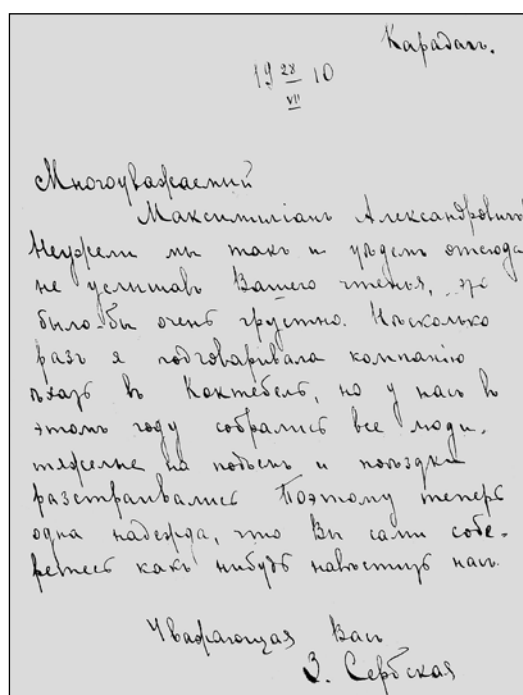 Карадагъ.
19 28/VII 10
Многоуважаемый
Максимиліанъ Александровичъ
Неужели мы такъ и уѣдемъ отсюда
не услышавъ Вашего чтенья, это
было-бы очень грустно. Нѣсколько
разъ я подговаривала компанію
ѣхать въ Коктебель, но у насъ въ
этомъ году собрались все люди,
тяжелые на подъемъ и поѣздки
разстраивались Поэтому теперь
одна надежда, что Вы сами собе-
ретесь какъ нибудь навѣстить насъ.
Уважающая Васъ
З. Сербская